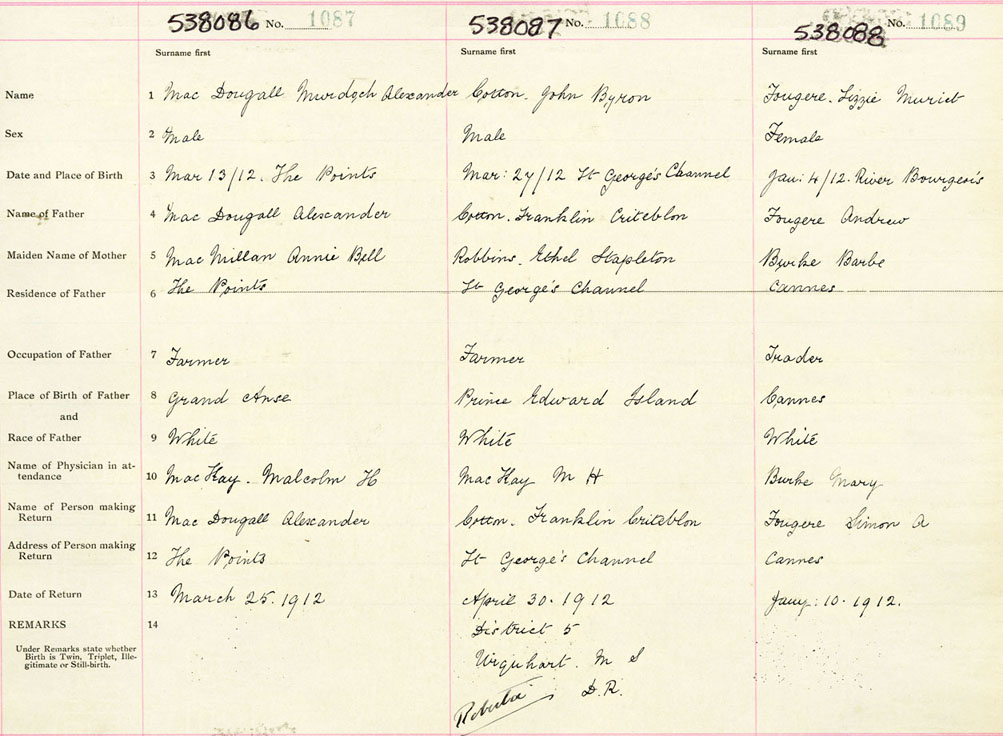 538086 No. 1087 538087 No. 1088 538088 No. 1089
Surname first Surname first Surname first
Name 1 Mac Dougall Murdoch Alexander Cotton. John Byron Fougere. Lizzie Muriel
Sex 2 Male Male Female
Date and Place of Birth 3 Mar 13/12. The Points Mar: 27/12 St George's Channel Jan: 4/12. River Bourgeois
Name of Father 4 Mac Dougall Alexander Cotton. Franklin Fougere Andrew
Maiden Name of Mother 5 Mac Millan Annie Bell Robbins. Ethel Stapleton Burke Barbe
Residence of Father 6 The Points St George's Channel Cannes
Occupation of Father 7 Farmer Farmer Trader
Place of Birth of Father 8 Grand Anse Prince Edward Island Cannes
and
Race of Father 9 White White White
Name of Physician in at-
tendance 10 Mac Kay. Malcolm H Mac Kay M H Burke Mary
Name of Person making
Return 11 Mac Dougall Alexander Cotton. Franklin Fougere Simon A
Address of Person making
Return 12 The Points St George's Channel Cannes
Date of Return 13 March 25. 1912 April 30. 1912 Jany: 10. 1912.
REMARKS 14 District 5
Under Remarks state whether
Birth is Twin, Triplet, Ille-
gitimate or Still-birth.
Urquhart. M S
D.R.